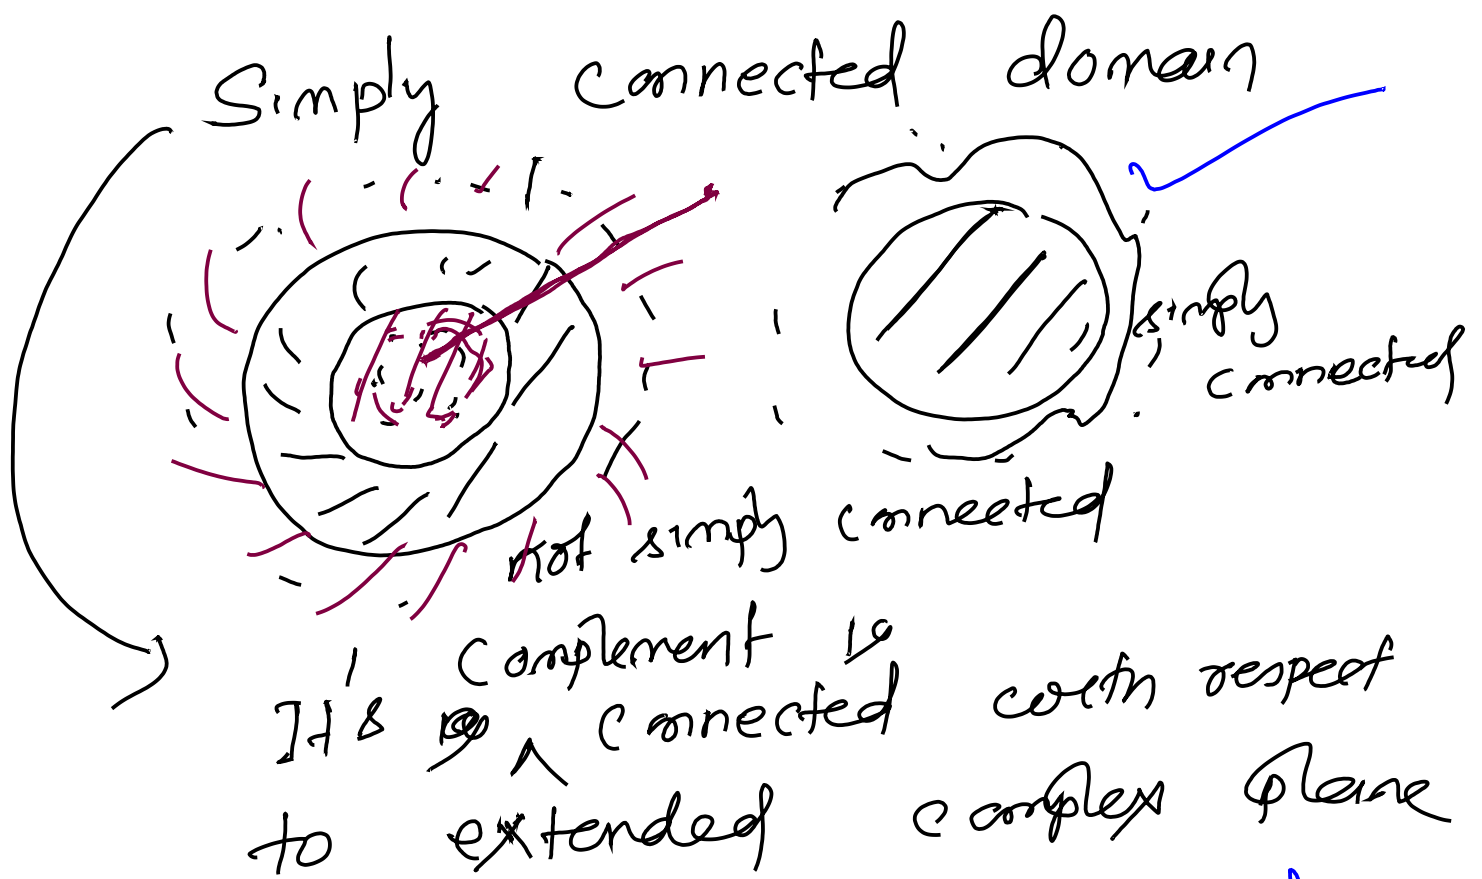 Simply connected domain
simply
connected
not simply connected
complement is
It's connected with respect
to extended complex plane